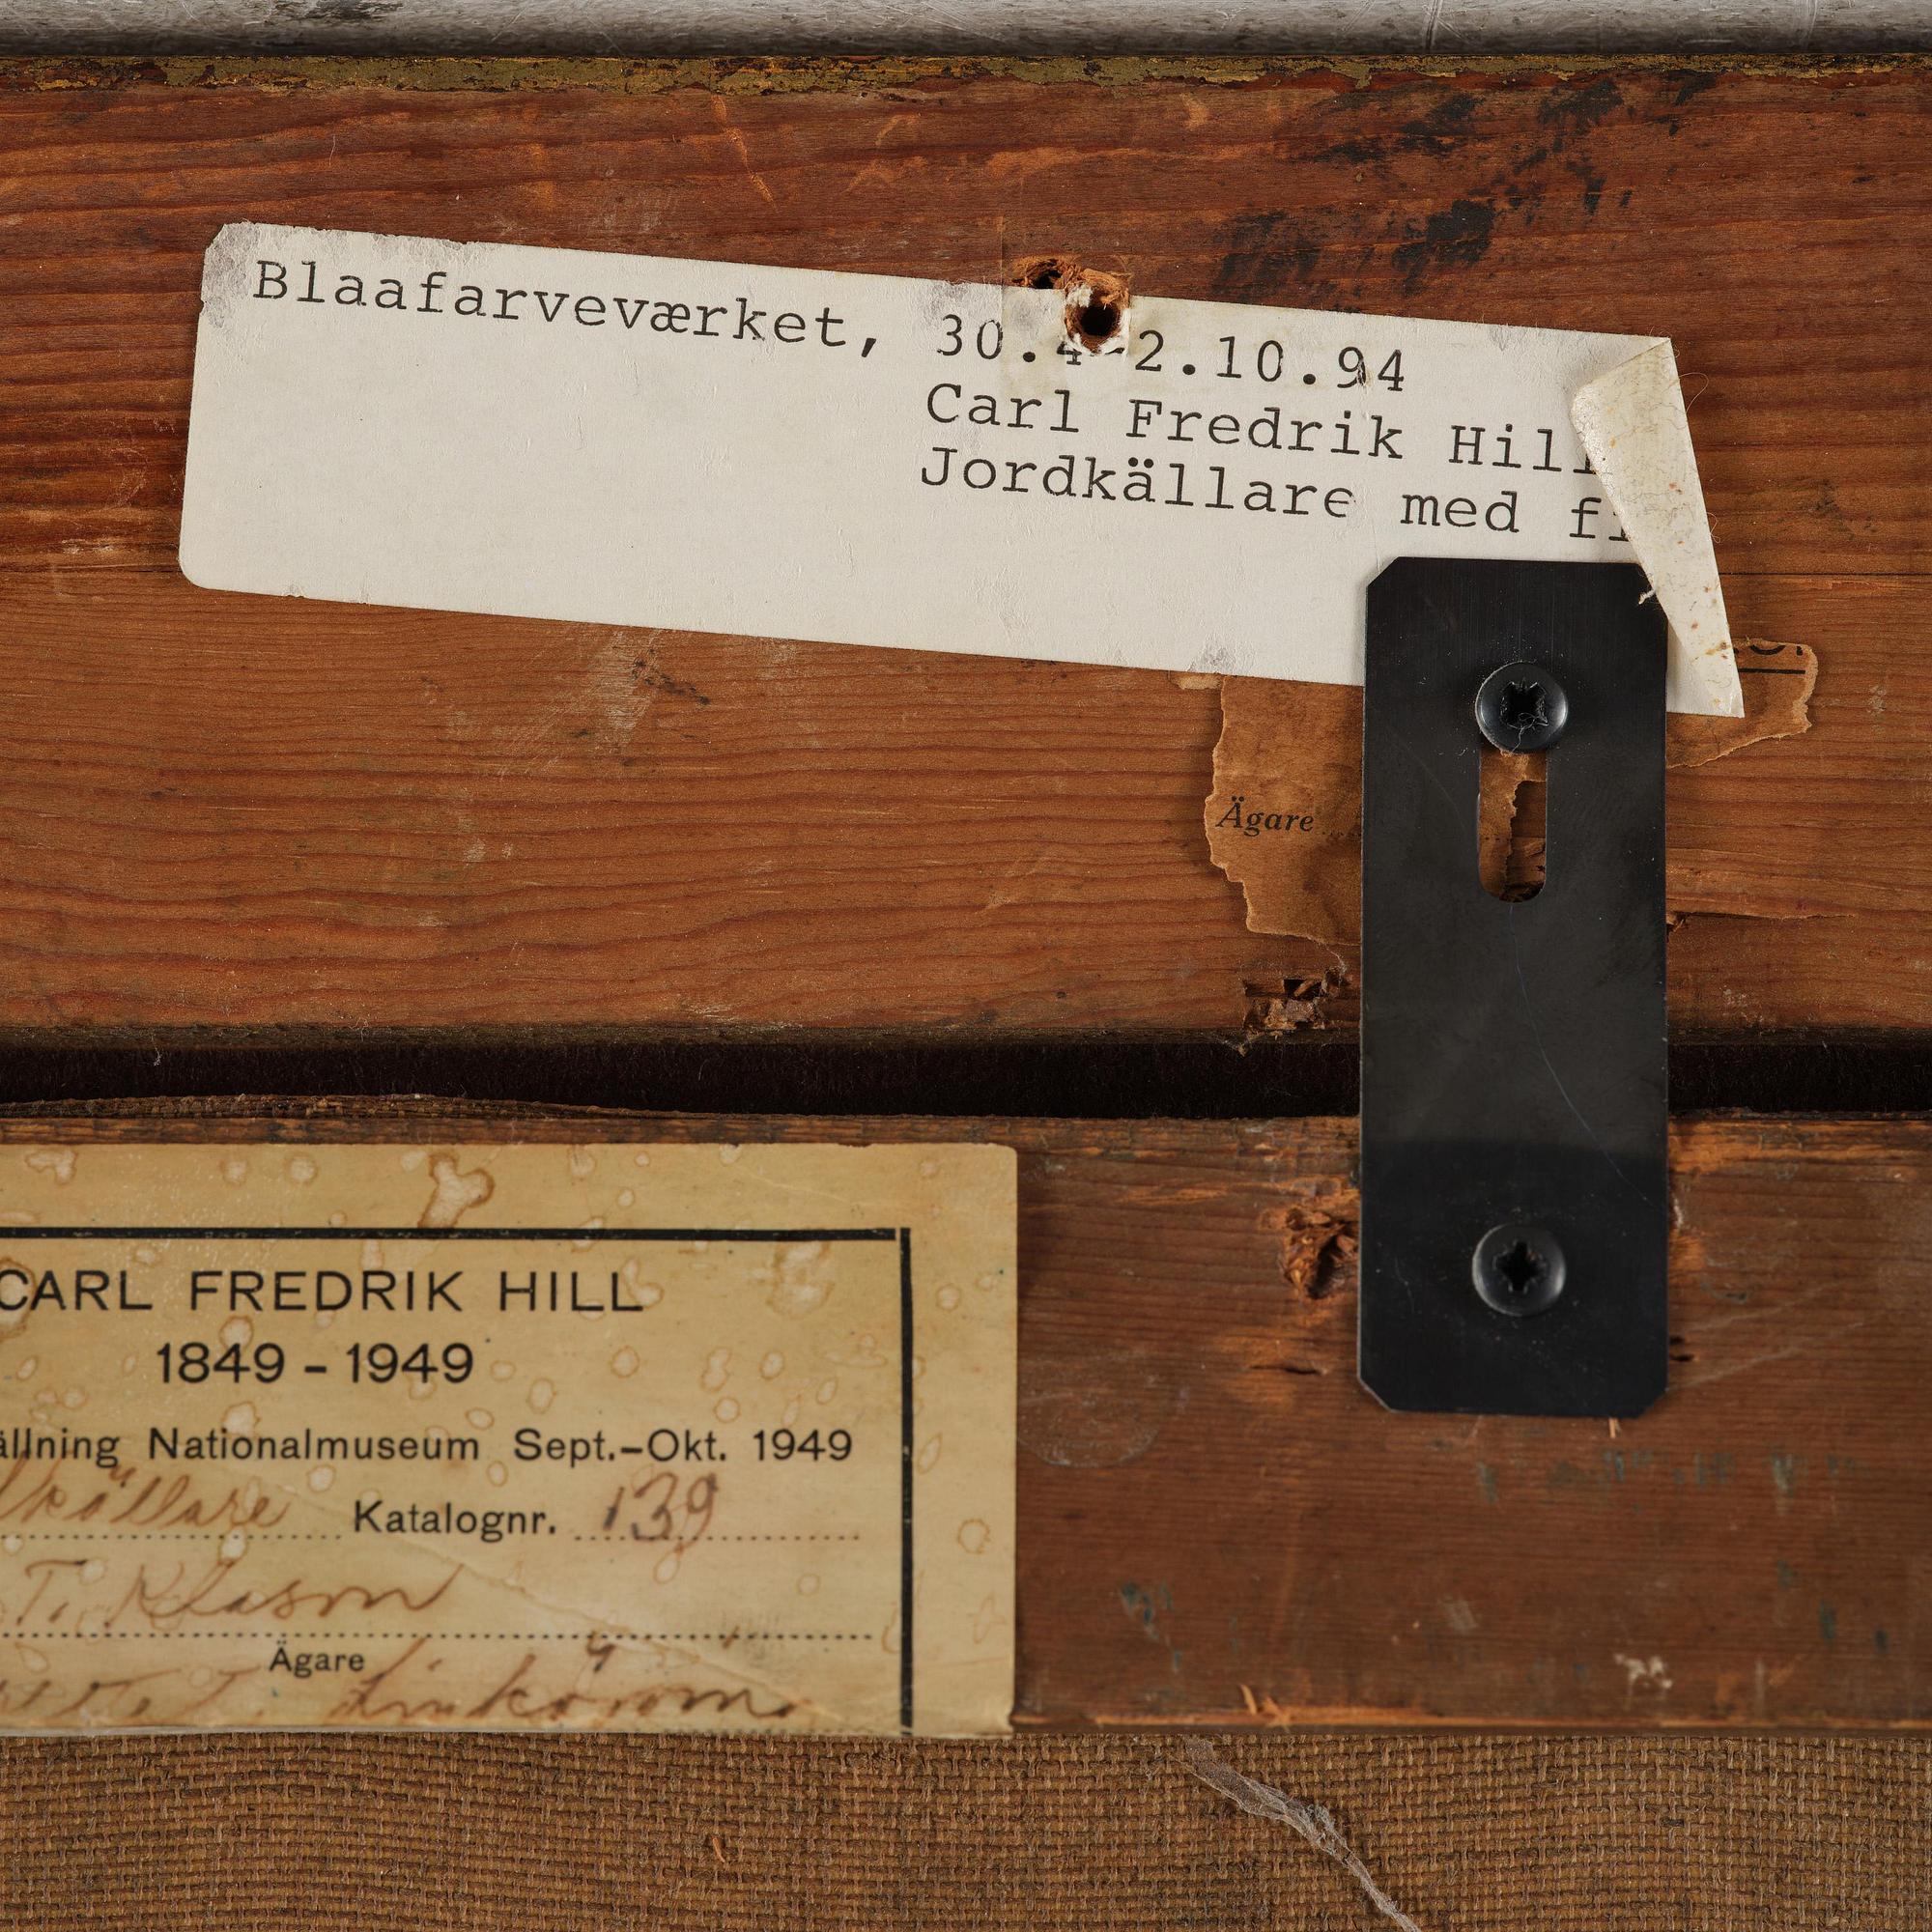 Blaafarveværket, 30.4-2.10.94
Carl Fredrik Hill
Jordkällare med
Ägare
CARL FREDRIK HILL
1849 - 1949
ällning Nationalmuseum Sept.-Okt. 1949
källare Katalognr. 139
T. Klason
Ägare